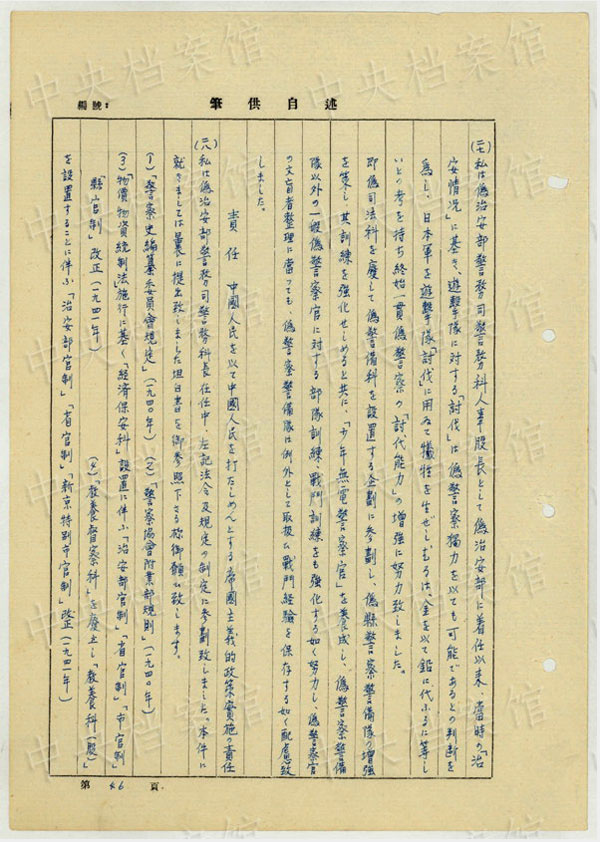 編號：
筆供自述
(二七)私は偽治安部警務司警務科人事股長として偽治安部に着任以来、当時の「治
安情況」に基き、遊撃隊に対する「討伐」は偽警察独力を以ても可能であるとの判断を
為し、日本軍を遊撃隊「討伐」に用ゐて犠牲を生ぜしむるは、金を以て鉛に代ふるに等し
いとの考を持ち終始一貫偽警察の「討伐能力」の増強に努力致しました。
即偽司法科を廃して偽警備科を設置する企劃に参劃し、偽縣警察警備隊の増強
を策し、其訓練を強化せしめると共に、「少年無電警察官」を養成し、偽警察警備
隊以外の一般偽警察官に対する部隊訓練、戦鬥訓練をも強化する如く努力し、偽警察官
の文盲者整理に当つても、偽警察警備隊は例外として取扱ひ戦鬥経験を保存する如く配慮致
しました。
責任 中國人民を以て中國人民を打たしめんとする帝國主義的政策実施の責任
(二八)私は偽治安部警務司警務科長在任中、左記法令及規定の制定に参劃致しました。本件に
就きましては曩に提出致しました坦白書を御参照下さる様御願ひ致します。
(1)「警察史編纂委員會規定」(一九四〇年) (2)「警察協會附業部規則」(一九四〇年)
(3)「物價物資統制法」施行に基く「経済保安科」設置に伴ふ「治安部官制」「省官制」「市官制」
「縣官制」改正(一九四一年) (4)「教養督察科」を廃止し「教養科(股)」
を設置することに伴ふ「治安部官制」「省官制」「新京特別市官制」改正(一九四一年)
第 46 頁
中央档案馆